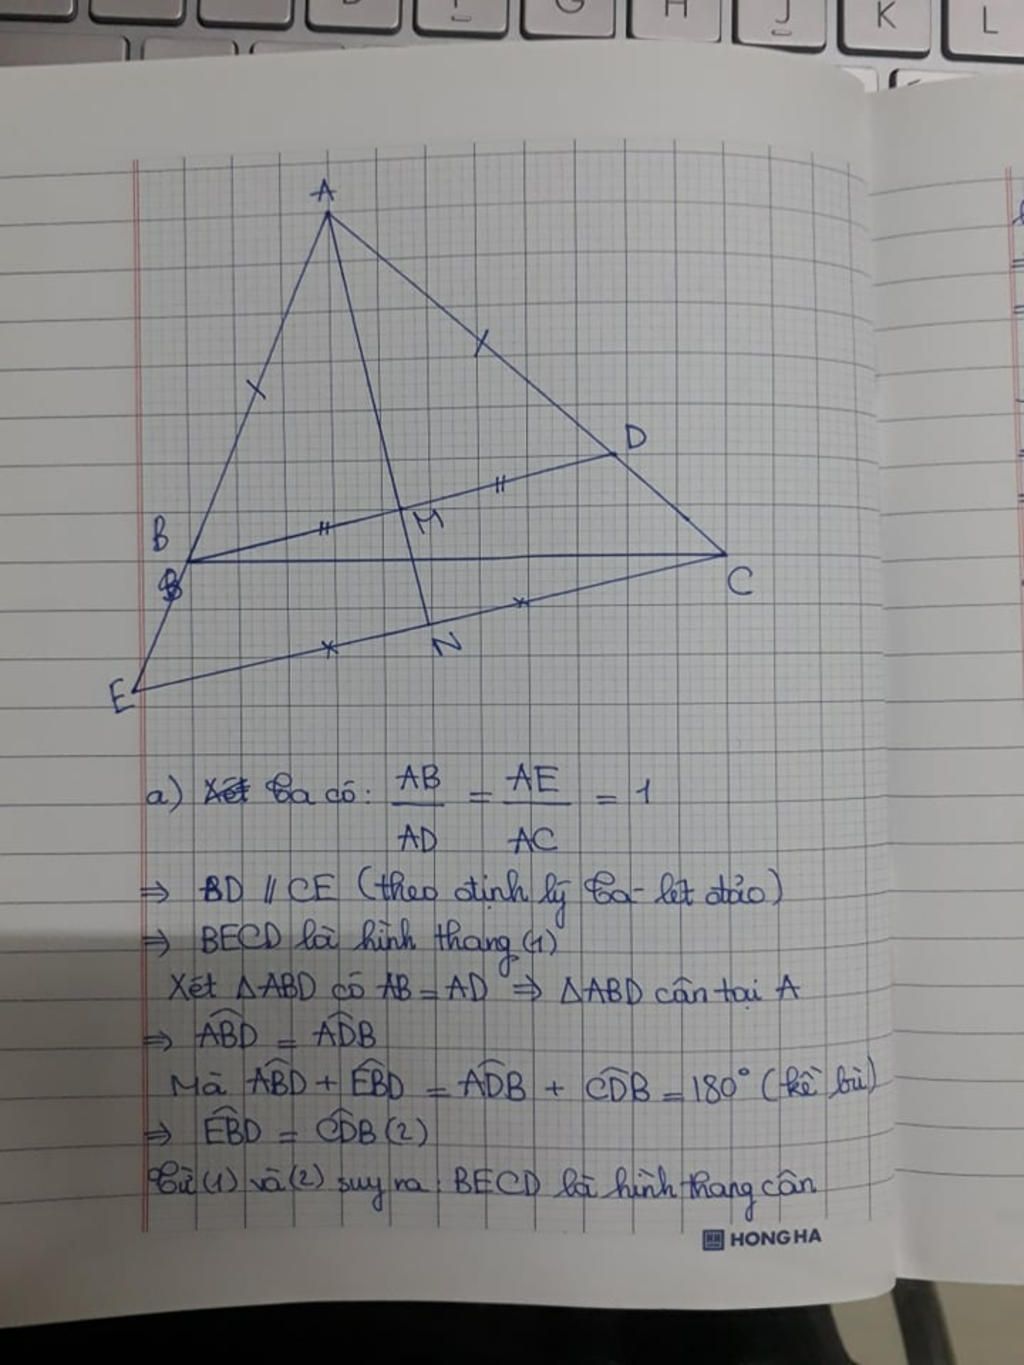 G H J K L
A
D
B
M
B
C
N
E
a) Xét Ta có: AB/AD = AE/AC = 1
⇒ BD // CE (theo định lý Ta-lét đảo)
⇒ BECD là hình thang (1)
Xét ΔABD có AB = AD ⇒ ΔABD cân tại A
⇒ ABD̂ = ADB̂
Mà ABD̂ + EBD̂ = ADB̂ + CDB̂ = 180° (kề bù)
⇒ EBD̂ = CDB̂ (2)
Từ (1) và (2) suy ra: BECD là hình thang cân
HONG HA